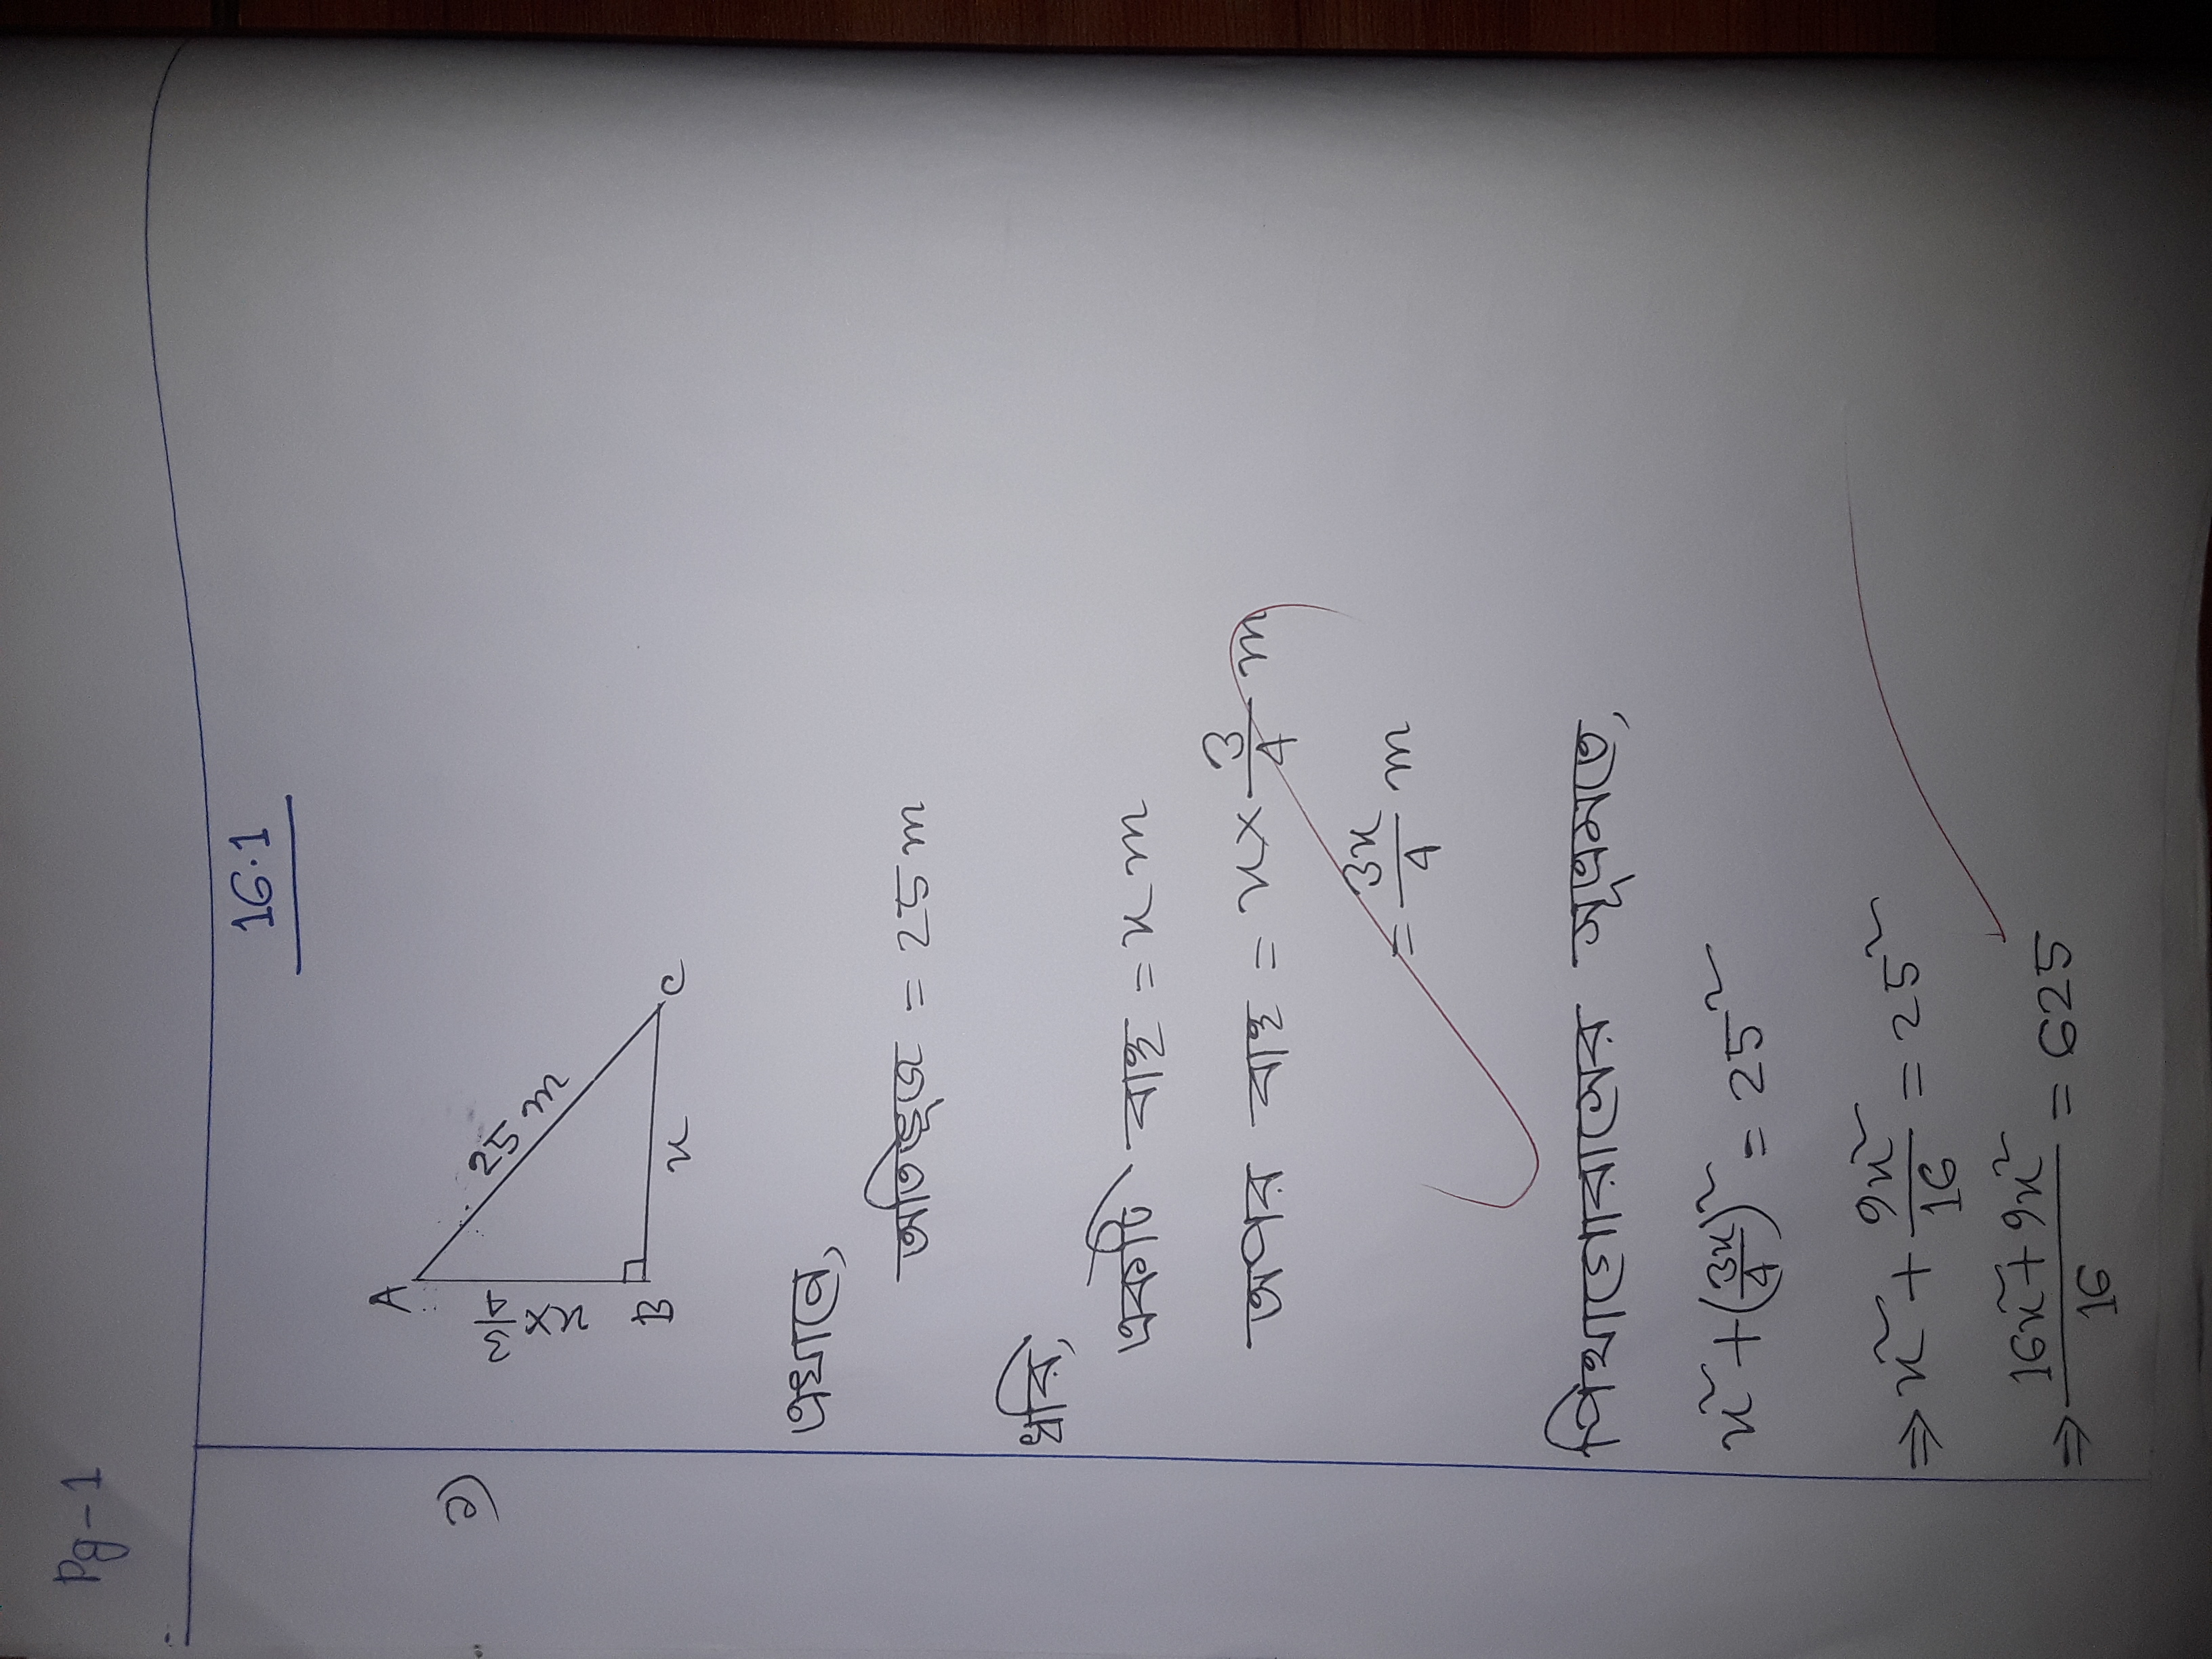 Pg-1
16.1
১)
A
x×3/4
25 m
B
x
C
এখানে,
অতিভূজ = 25 m
ধরি,
একটি বাহু = x m
অপর বাহু = x× 3/4 m
= 3x/4 m
পিথাগোরাসের সূত্রমতে,
x² + (3x/4)² = 25²
⇒ x² + 9x²/16 = 25²
⇒ 16x² + 9x²/16 = 625